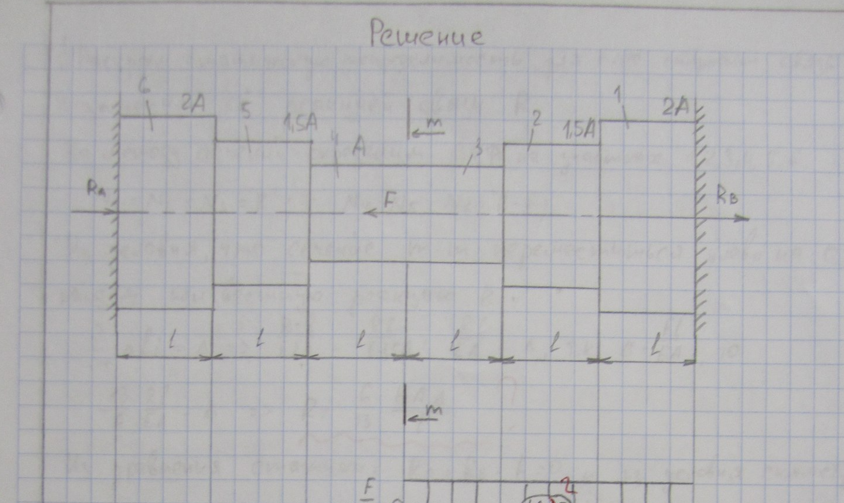 Решение
6 2A 5 1,5A 4 A m 3 2 1,5A 1 2A
RA F RB
l l l l l l
m
F
2